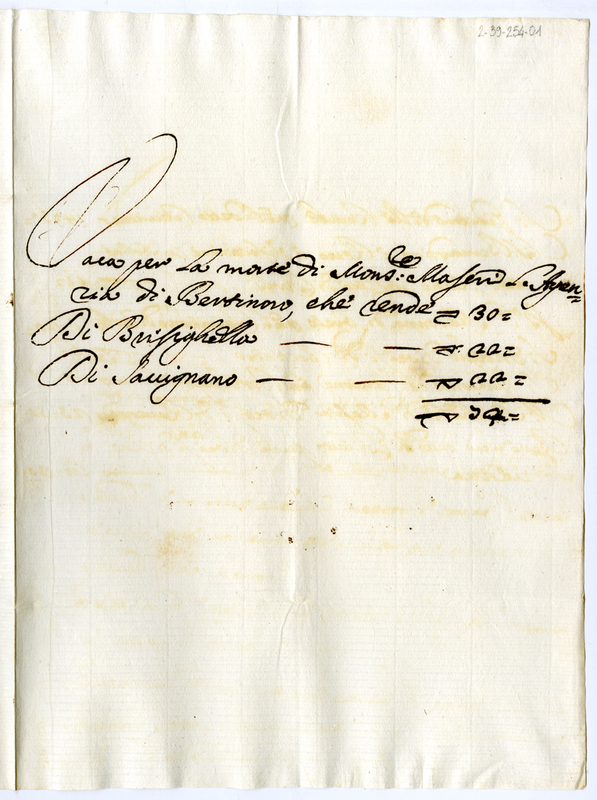 2-39-254-01
Vaca per la morte di Mons:re Maseri l'Agen=
zia di Bertinoro, che rende ▽ 30=
Di Brisighella — — ▽ 22=
Di Savignano — — ▽ 22=
▽ 74=